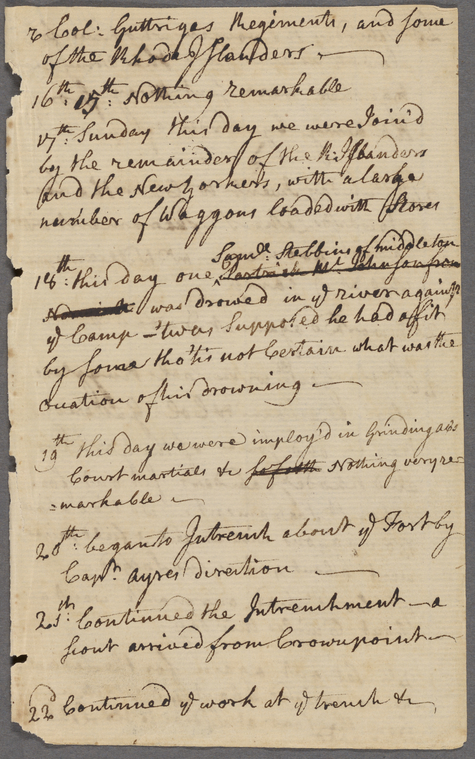 & Col: Guttriges Regiments, and some
of the Rhode Islanders —
16th: 15th: Nothing remarkable
17th: Sunday this day we were Join'd
by the remainder of the R: Islanders
and the New Yorkers, with a large
number of Waggons loaded with Stores
Saml: Stebbins of middleton
18th: this day one
was drowed in ye river against
ye Camp — 'twas Supposed he had a fit
by some tho' 'tis not Certain what was the
of his Drowning —
19th this day we were imploy'd in Grinding axes
Court martials &c Nothing very re=
=markable —
20th: began to Intrench about ye Fort by
Capt. Ayres direction —
21st: Continued the Intrenchment — a
scout arrived from Crownpoint —
22d Continued ye work at ye trench &c